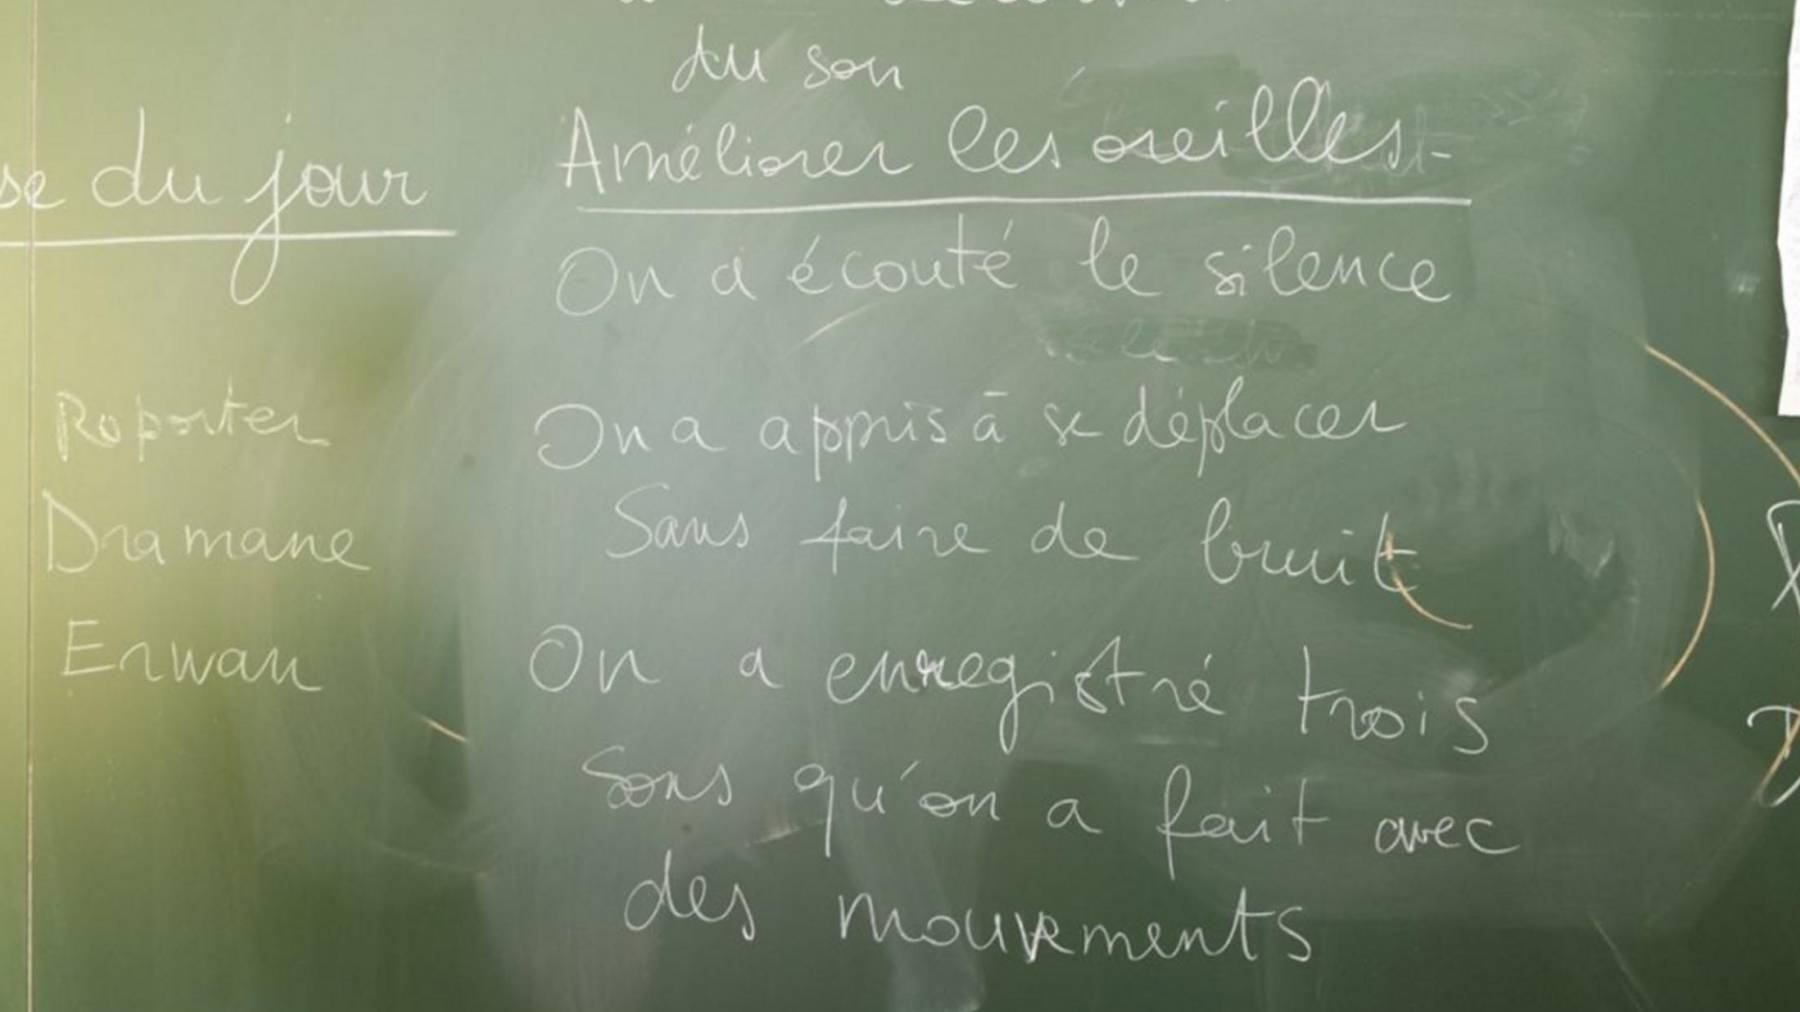 du son
Améliorer les oreilles.
du jour
On a écouté le silence
Reporter
On a appris à se déplacer
Dramane
Sans faire de bruit
Erwan
On a enregistré trois
Sons qu'on a fait avec
des mouvements